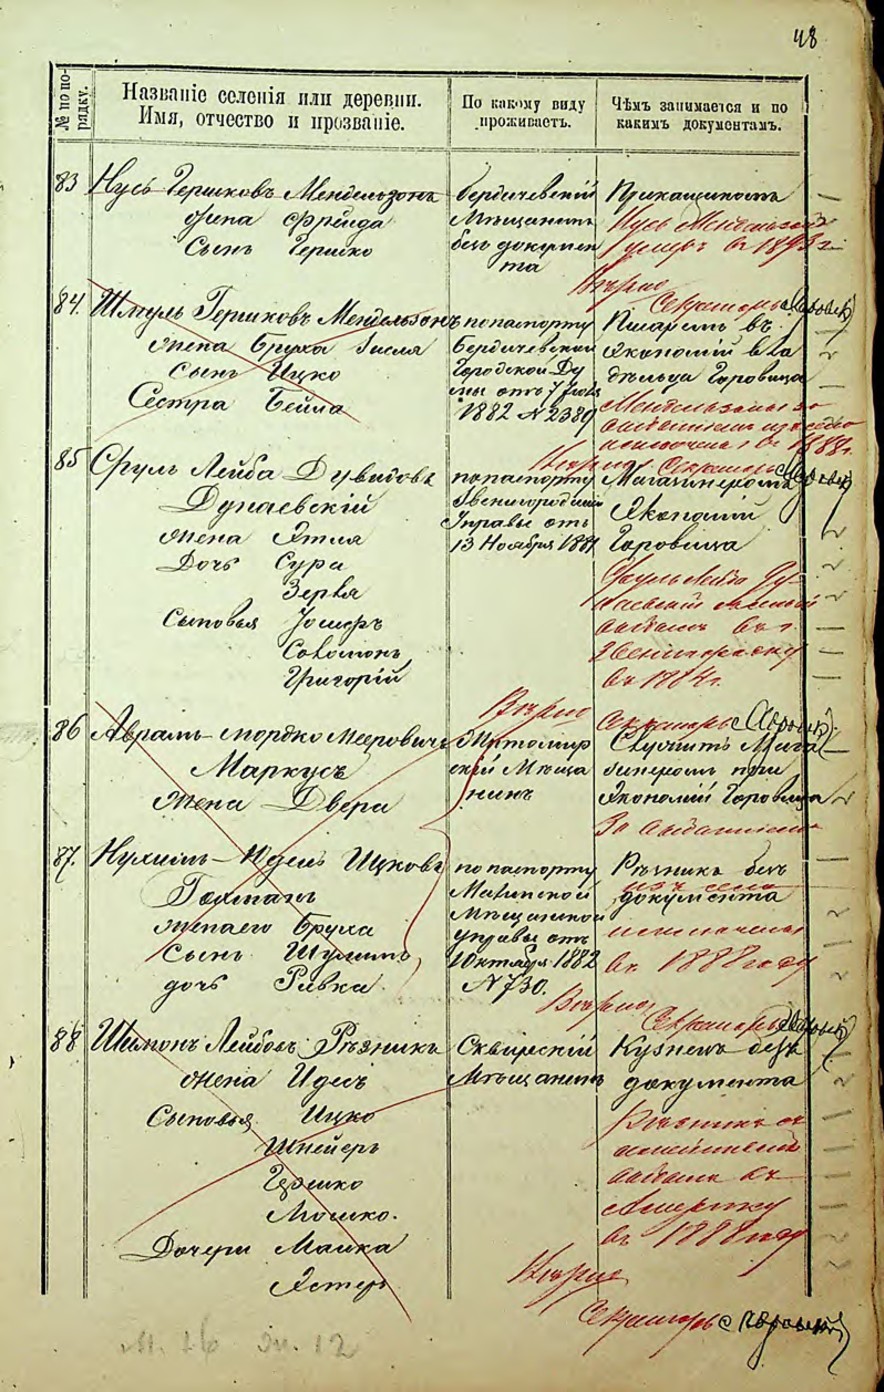 48
№ по по-
рядку.
Названіе селенія или деревни.
Имя, отчество и прозваніе.
По какому виду
проживаетъ.
Чѣмъ занимается и по
какимъ документамъ.
83 Нусь Гершковъ Мендельзонъ
жена Фрейда
Сынъ Гершко
бердичевскій
Мѣщанинъ
безъ докумен
та
Прикащикомъ
Нусь Мендельзонъ
умеръ въ 1893 г.
Вѣрно
Секретарь
84. Шмуль Гершковъ Мендельзонъ
жена Бруха Гисля
Сынъ Ицко
Сестра Бейла
по паспорту
Бердичевской
Городской Ду
мы отъ 7 Іюля
1882 № 2389
Писаремъ въ
Экономій вла
дѣльца Горовица
Мендельзонъ за
исключенъ въ 1888 г.
Вѣрно Секретарь
85 Сруль Лейба Дувидовъ
Дунаевскій
жена Этля
Дочь Сура
Зерля
Сыновья Іосифъ
Соломонъ
Григорій
по паспорту
Звенигородской
Управы отъ
13 Ноября 1881
Магазинеромъ
Экономій
Горовица
Сруль Лейба Ду-
наевскій
выбылъ въ г.
Звенигородку
въ 1884 г.
Вѣрно
Секретарь
86 Аврамъ-Мордко Мееровичъ
Маркусъ
жена Двера
Житомир
скій Мѣща
нинъ
Служитъ Мага
зинеромъ при
Экономій Горовица
За выбытіемъ
87. Нухимъ-Юдель Ицковъ
Гохманъ
жена его Бруха
Сынъ Шулимъ
дочь Ривка
по паспорту
Мѣщанской
управы отъ
Октября 1882
№ 730.
Рѣзникъ безъ
документа
изъ села
исключены
въ 1888 году
Вѣрно
Секретарь
88 Шимонъ Лейбовъ Рѣзникъ
жена Идесъ
Сыновья Ицко
Шнейеръ
Гершко
Мошко.
Дочери Малка
Эстеръ
Сквирскій
Мѣщанинъ
Кузнецъ безъ
документа
Рѣзникъ съ
семействомъ
выбылъ въ
Америку
въ 1888 году
Вѣрно
Секретарь
м. 26 ж. 12